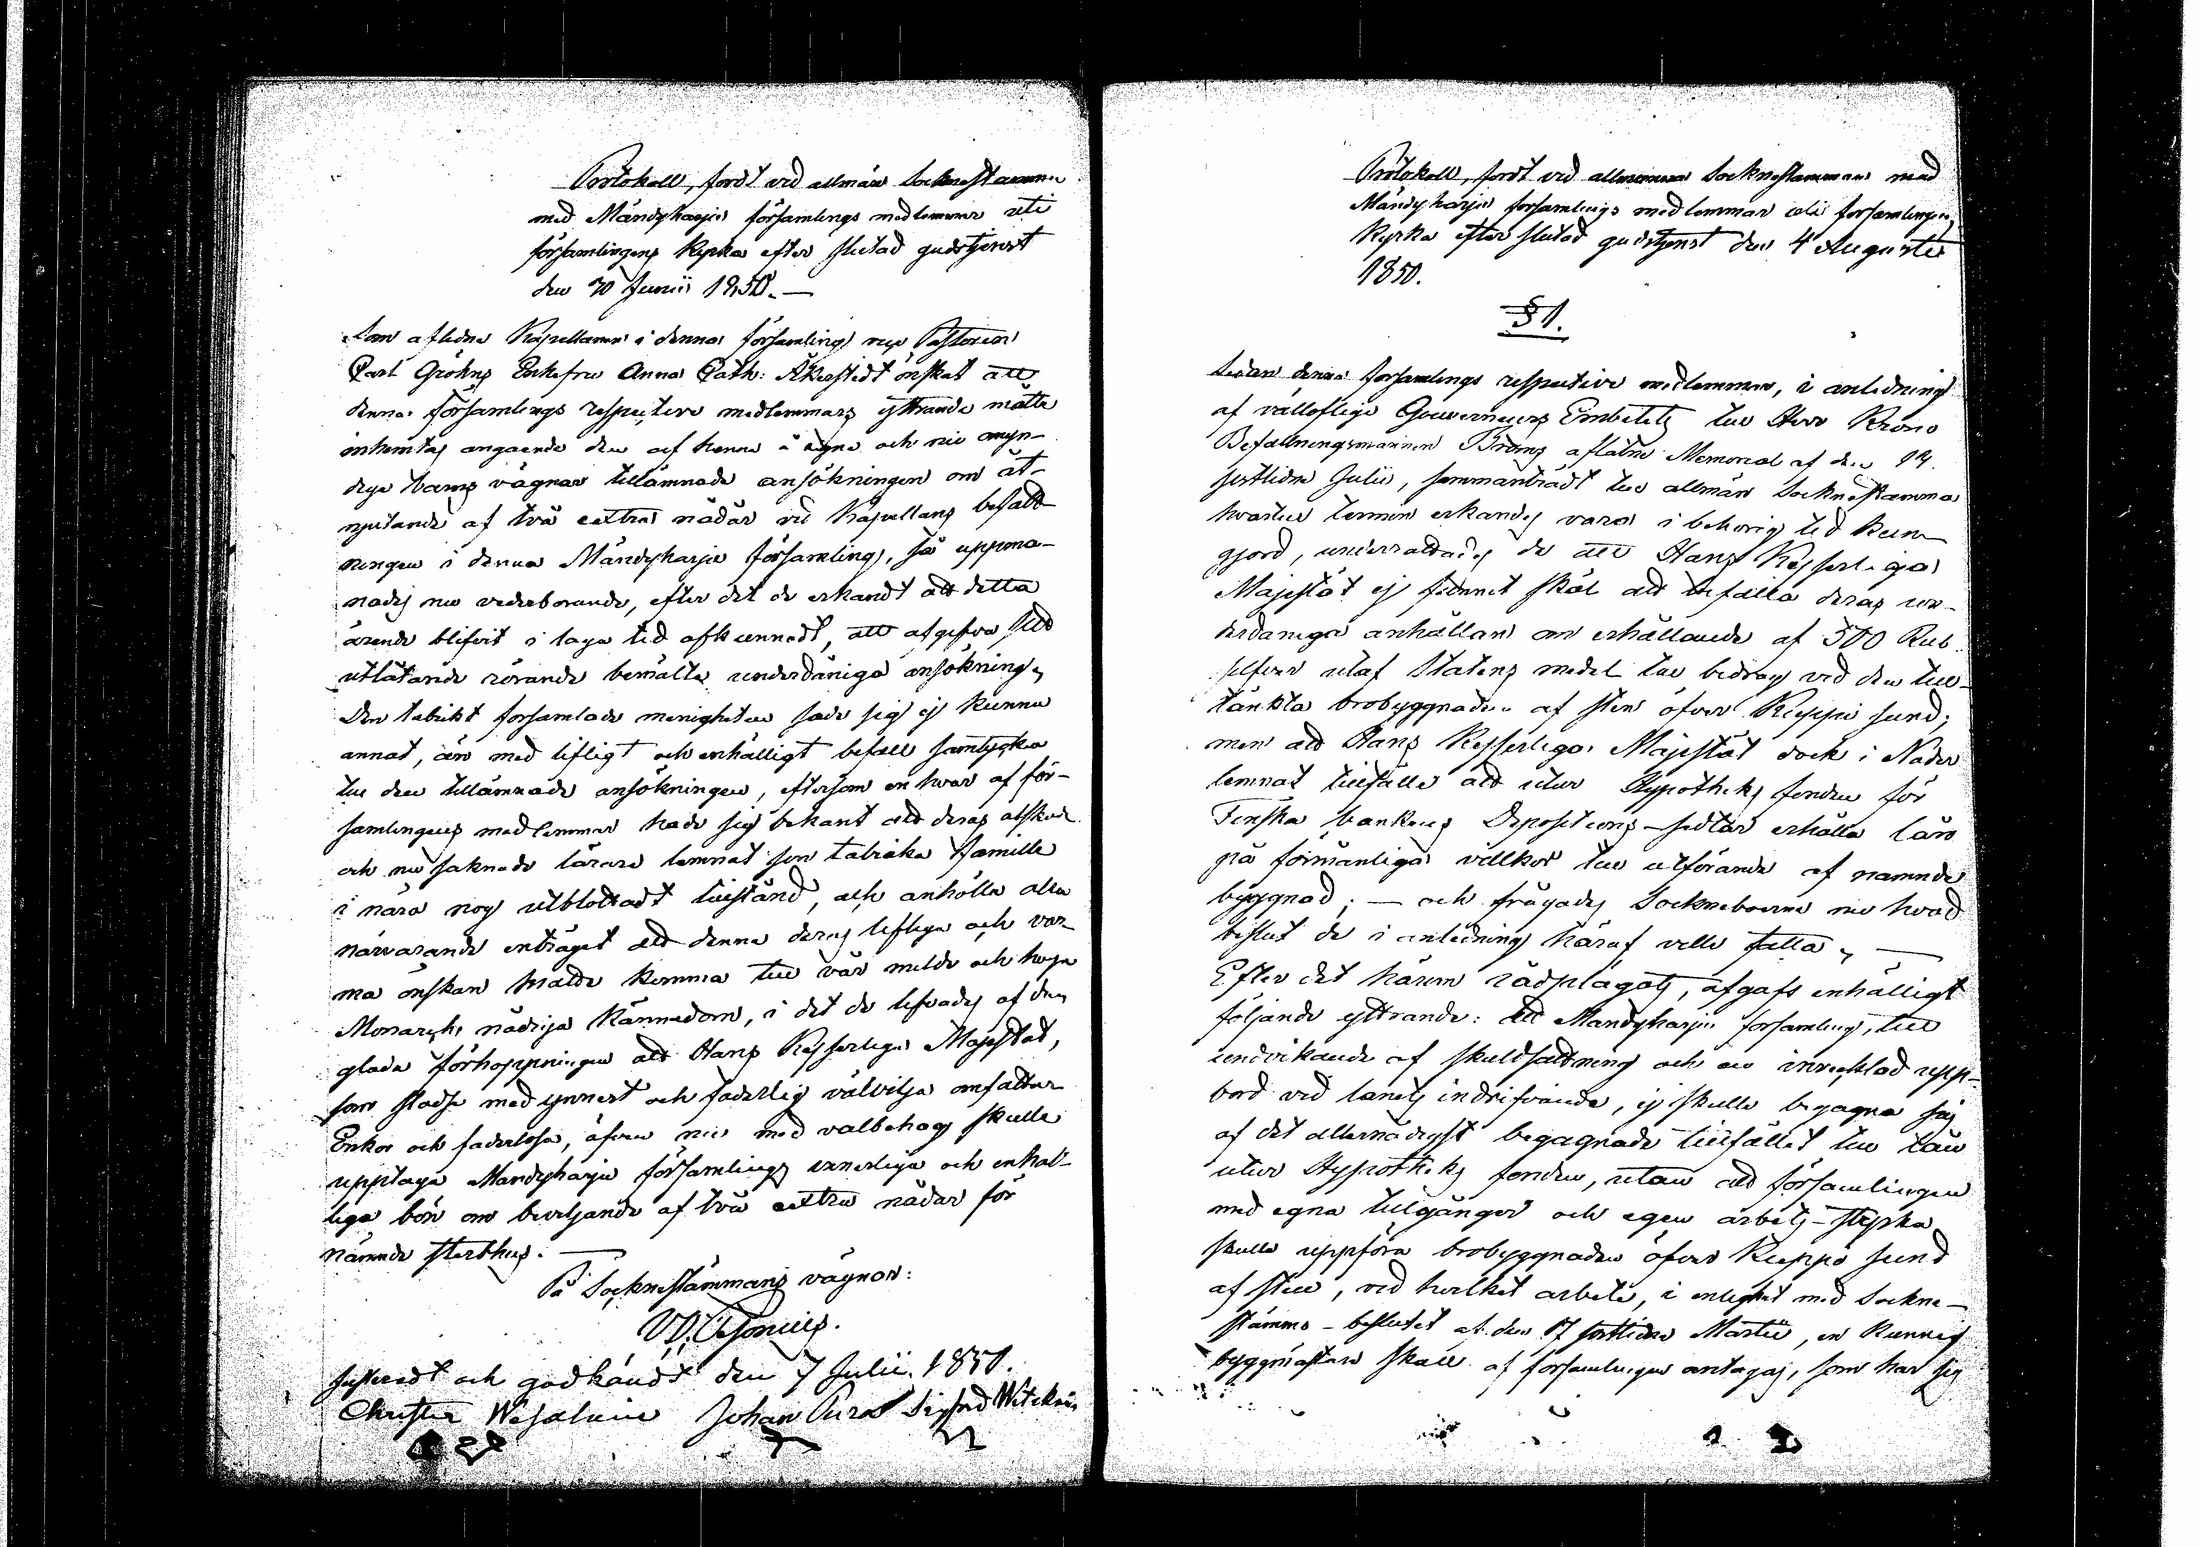 Protokoll, fördt vid allmän Socknestämma
med Mändyharju församlings medlemmar uti
församlingens Kyrka efter slutad gudstjenst
den 30 Junii 1850. —
Som aflidne Kapellanen i denna församling Pastoren
Carl Gröhns Enkefru Anna Cath: Åkerstedt önskat att
denna församlings respective medlemmars yttrande måtte
inhemtas angaende den af henne å egna och sine omyn-
diga barns vägnar tillämnade ansökningen om åt-
njutande af två extra nådår vid Kapellans beställ-
ningen i denna Mändyharju församling, så uppma-
nades nu vederborande, efter det de erkandt att detta
ärende blifvit i laga tid afkunnadt, att afgifva sitt
utlåtande rörande bemälte underdåniga ansökning,
Den talrikt forsamlade menigheten sade sig ej kunna
annat, än med lifligt och enhälligt bifall samtycka
till den tillämnade ansökningen, eftersom en hvar af för-
samlingens medlemmar hade sig bekant att deras älskade
och nu saknade lärare lemnat sin talrika famille
i nära nog utblottadt tillstånd, och anhölle alla
närvarande enträget att denna deras lifliga och var-
ma önskan måtte komma till vår milde och huga
Monarchs nådiga kännedom, i det de lifvades af den
glada förhoppningen att Hans Kejserliga Majestät,
som städse med ynnest och faderlig välvilja omfattar
Enkor och faderlosa, äfven nu med valbehag skulle
upptaga Mandyharju församlings innerliga och enhäl-
liga bön om beviljande af två extra nådår för
nämnde sterbhus. —
På Socknestämmans vägnar:
Justeradt och godkändt den 7 Julii 1850.
Christer Wesalain Johan Pura Sigfrid Witikain
Protokoll, fördt vid allmänna Socknestämman med
Mändyharju forsamlings medlemmar uti forsamlingens
Kyrka efter slutad gudstjenst den 4 Augusti
1850.
§ 1.
Sedan denna forsamlings respective medlemmar, i anledning
af vällofliga Gouverneurs Embetets till Herr Krono
Befallningsmannen Broms aflåtne Memorial af den 19
sistlidne Julii, sammanträdt till allmän Socknestämma
hvartill termin erkandes vara i behorig tid kun-
gjord, underrättades de att Hans Kejserliga
Majestät ej funnit skäl att bifalla deras un-
derdaniga anhållan om erhållande af 500 Rub.
silfver utaf Statens medel till bidrag vid den till-
tänkta brobyggnaden af sten öfver Kieppi sund;
men att Hans Kejserliga Majestät dock i Nåder
lemnat tillfälle att utur Hypotheks fonden för
Finska bankens Depositions-sedlar erhålla lån
på förmånliga villkor till utförande af namnde
byggnad; — och frågades Sockneboerne nu hvad
beslut de i anledning häraf ville fatta, —
Efter det härom rådplägats, afgafs enhälligt
följande yttrande: att Mandyharju forsamling, till
undvikande af skuldsättning och en invecklad upp-
bord vid lanets indrifvande, ej skulle begagna sig
af det allernådigst begagnade tillfället till lån
utur Hypotheks fonden, utan att församlingen
med egna tillgångar och egen arbets-styrka
skulle uppföra brobyggnaden öfver Kieppi sund
af sten, vid hvilket arbete, i enlighet med Sockne-
stämmo-beslutet af den 17 sistlidne Martii, en kunnig
byggmästare skall af forsamlingen antagas, som har sig